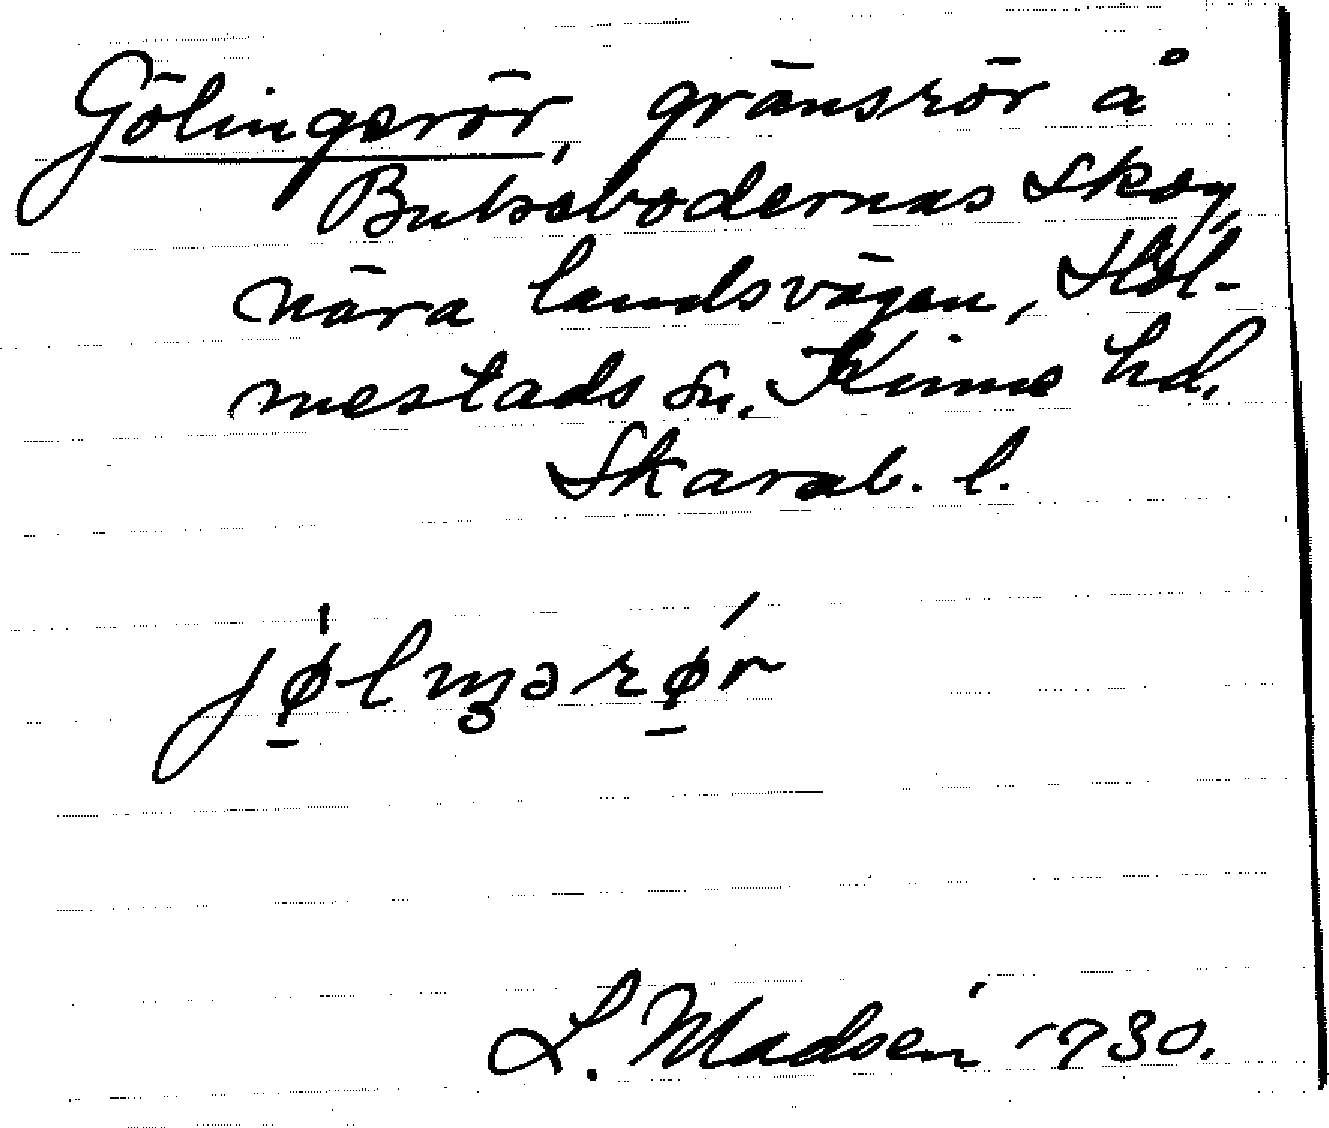 Gölingsrör, gränsrör å
Bulsbodernas skog
nära landsvägen, Hol-
mestads sn. Kinne hd.
Skarab. l.
L. Madsén 1930.